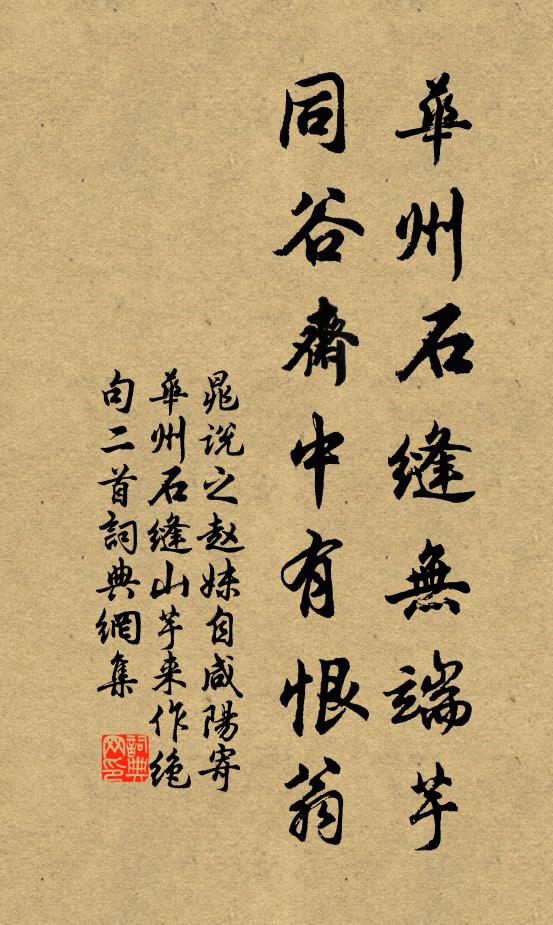 華州石縫無端芋
同谷齋中有恨翁
晁說之赵妹自咸陽寄
華州石縫山芋来作绝
句二首詞典網集
詞典网印